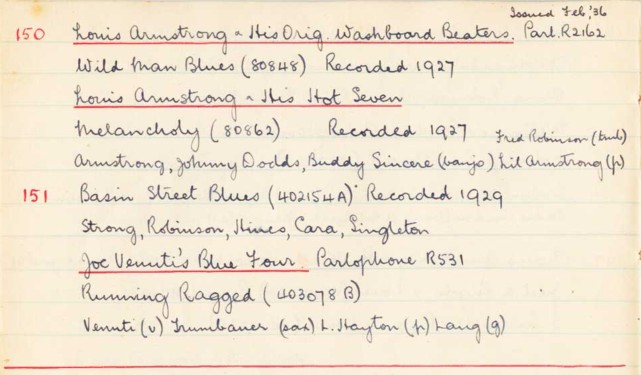 Issued Feb, '36
150 Louis Armstrong & His Orig. Washboard Beaters. Parl. R2162
Wild Man Blues (80848) Recorded 1927
Louis Armstrong & His Hot Seven
Melancholy (80862) Recorded 1927 Fred Robinson (tmb)
Armstrong, Johnny Dodds, Buddy Sincere (banjo) Lil Armstrong (p)
151 Basin Street Blues (402154A) Recorded 1929
Strong, Robinson, Hines, Cara, Singleton
Joe Venuti's Blue Four. Parlophone R531
Running Ragged (403078B)
Venuti (v) Trumbauer (sax) L. Hayton (p) Lang (g)